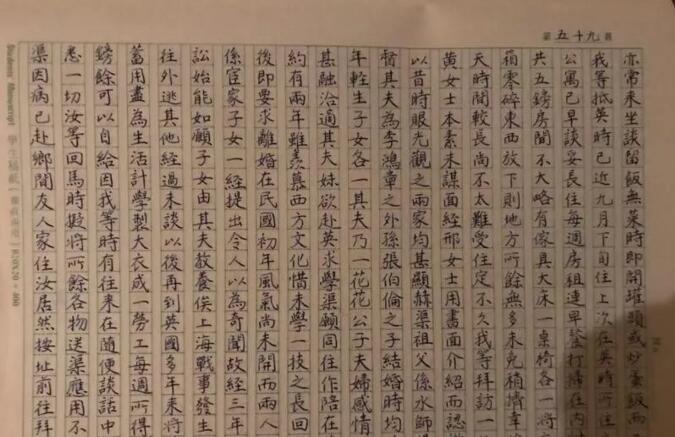 第五十九頁
亦常来坐談留飯無菜時即開罐頭或炒蛋飯而
我等抵英時已近九月下旬住上次在英時所住
公寓已早談妥長住每週房租連早餐打掃在内
共五鎊房間不大略有傢具大床一桌椅各一將
箱零碎東西放下則地方所餘無多未免稍擠幸
天時間較長尚不太難受住定不久我等拜訪一
黄女士本素未謀面經邢女士用書面介紹而認
以昔時眼光觀之兩家均甚顯赫渠祖父係水師
督其夫為李鴻章之外孫張伯倫之子結婚時均
年輕生子女各一其夫乃一花花公子夫婦感情
甚融洽適其夫妹欲赴英求學渠願同往作陪在
約有兩年雖羨慕西方文化惜未學一技之長回
後即要求離婚在民國初年風氣尚未開而兩人
係宦家子女一經提出令人以為奇聞故經三年
訟始能如願子女由其夫教養俟上海戰事發生
往外逃其他經過未談以後再到英國多年来將
蓄用盡為生活計學製大衣成一勞工每週所得
鎊餘可以自給因我等時有往来在隨便談話中
悉一切汝等回馬時擬將所餘各物送渠應用不
渠因病已赴鄉間友人家住汝居然按址前往拜
Students' Manuscript 學生稿紙
20X20=400